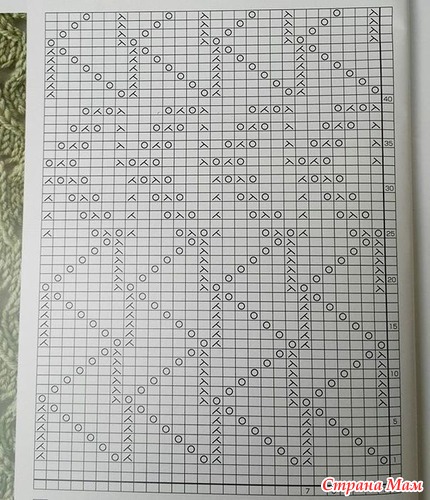 40
35
30
25
20
15
10
5
1
7
Страна Мам